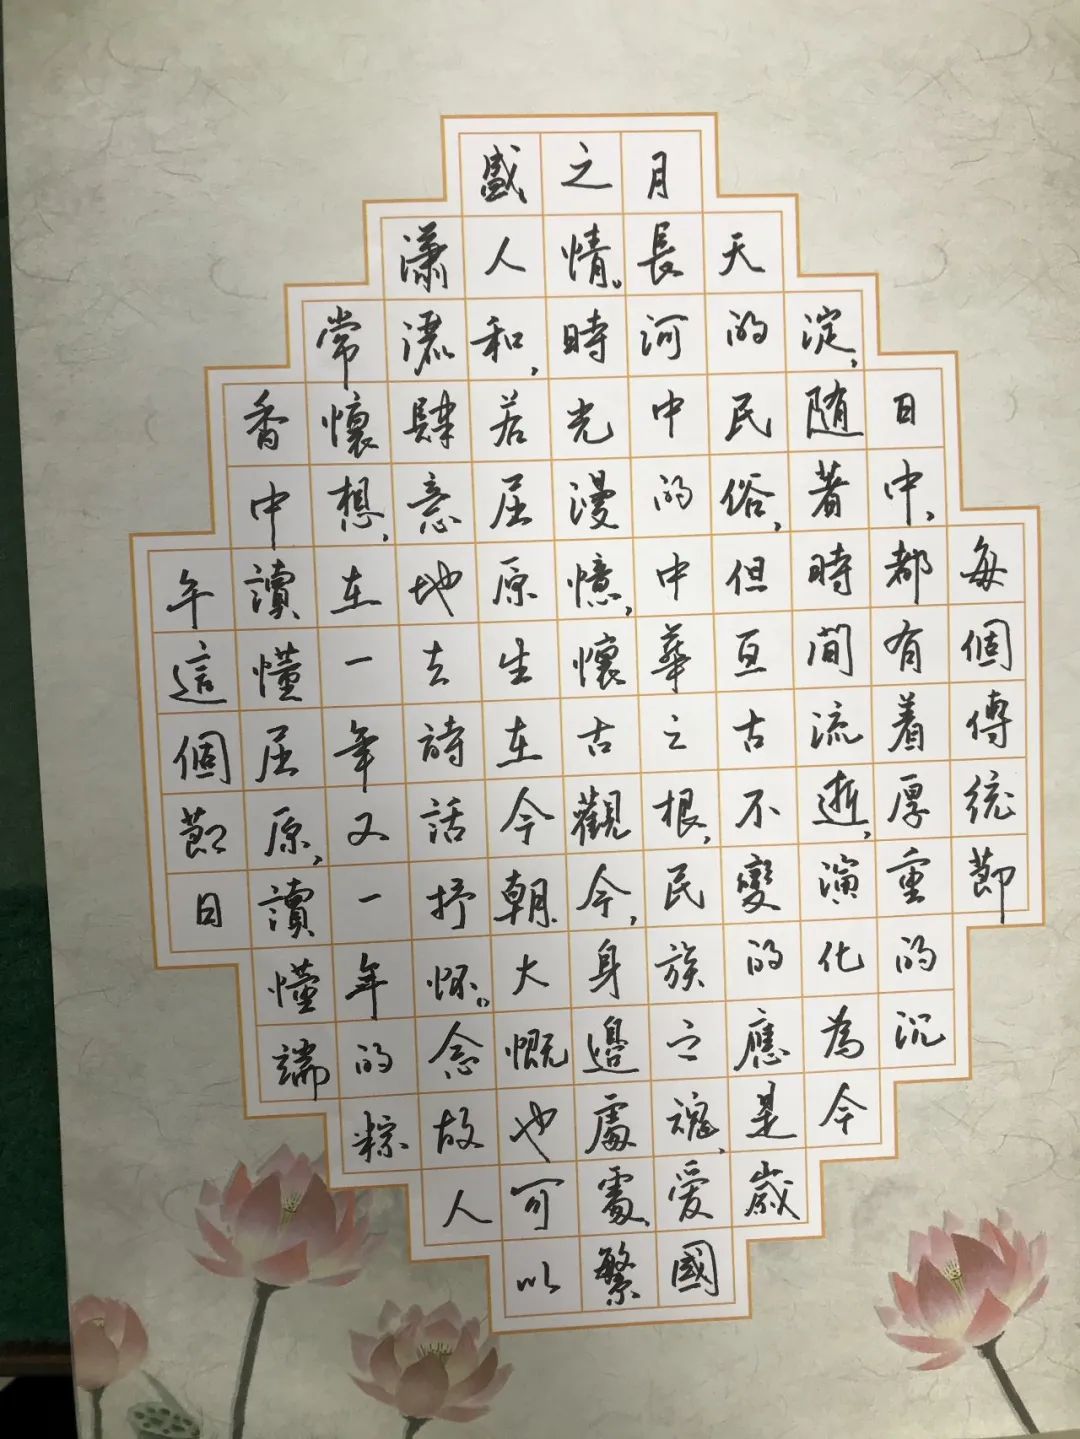 每個傳統節
日中,都有着厚重的沉
淀,随着時間流逝,演化為今
天的民俗,但亙古不變的應是歲
月長河中的中華之根,民族之魂,愛國
之情。時光漫憶,懷古觀今,身邊處處繁
盛人和,若屈原生在今朝.大慨也可以
瀟灑肆意地去詩話抒怀。念故人
常懷想,在一年又一年的粽
香中讀懂屈原,讀懂端
午這個節日